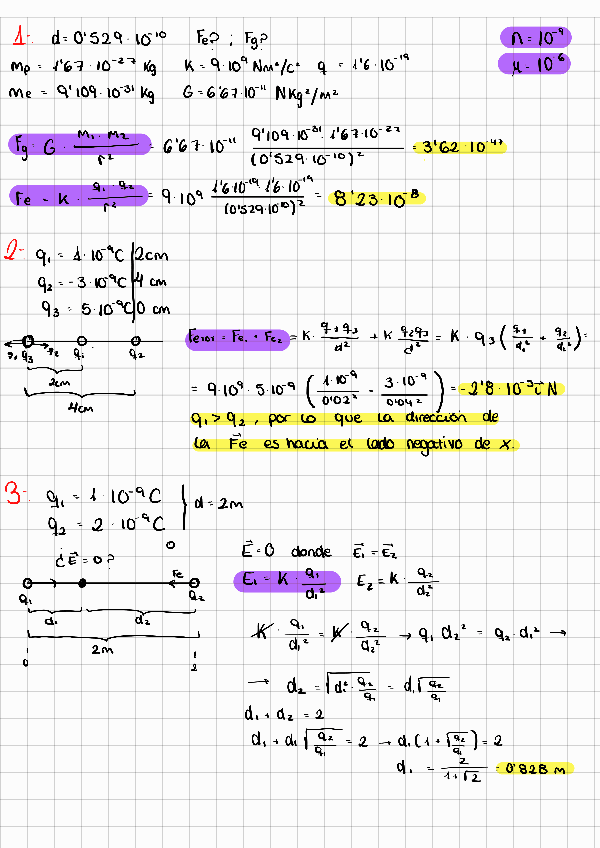 1-. d = 0'529·10⁻¹⁰ Fe? ; Fg? n = 10⁻⁹
mp = 1'67·10⁻²⁷ Kg K = 9·10⁹ Nm²/C² q = 1'6·10⁻¹⁹ μ = 10⁻⁶
me = 9'109·10⁻³¹ Kg G = 6'67·10⁻¹¹ NKg²/m²
Fg = G · m₁·m₂/r² = 6'67·10⁻¹¹ 9'109·10⁻³¹·1'67·10⁻²⁷/(0'529·10⁻¹⁰)² = 3'62·10⁻⁴⁷
Fe = K · q₁·q₂/r² = 9·10⁹ 1'6·10⁻¹⁹·1'6·10⁻¹⁹/(0'529·10¹⁰)² = 8'23·10⁻⁸
2- q₁ = 1·10⁻⁹C | 2cm
q₂ = -3·10⁻⁹C | 4 cm
q₃ = 5·10⁻⁹C | 0 cm
q₃ q₁ q₂
2cm
4cm
FeTOT = Fe₁ + Fe₂ = K · q₁q₃/d² + K q₂q₃/d² = K · q₃ (q₁/d₁² + q₂/d₂²) =
= 9·10⁹·5·10⁻⁹ (1·10⁻⁹/0'02² - 3·10⁻⁹/0'04²) = -2'8·10⁻⁵ i N
q₁ > q₂, por lo que la dirección de
la Fe es hacia el lado negativo de x.
3-. q₁ = 1·10⁻⁹C
q₂ = 2·10⁻⁹C | d = 2m
¿E = 0?
Fe
q₁ q₂
d₁ d₂
2m
0 2
E = 0 donde E₁ = E₂
E₁ = K · q₁/d₁² E₂ = K · q₂/d₂²
K · q₁/d₁² = K · q₂/d₂² → q₁ d₂² = q₂·d₁² →
→ d₂ = √(d₁²·q₂/q₁) = d₁√(q₂/q₁)
d₁ + d₂ = 2
d₁ + d₁√(q₂/q₁) = 2 → d₁(1 + √(q₂/q₁)) = 2
d₁ = 2/(1+√2) = 0'828 m